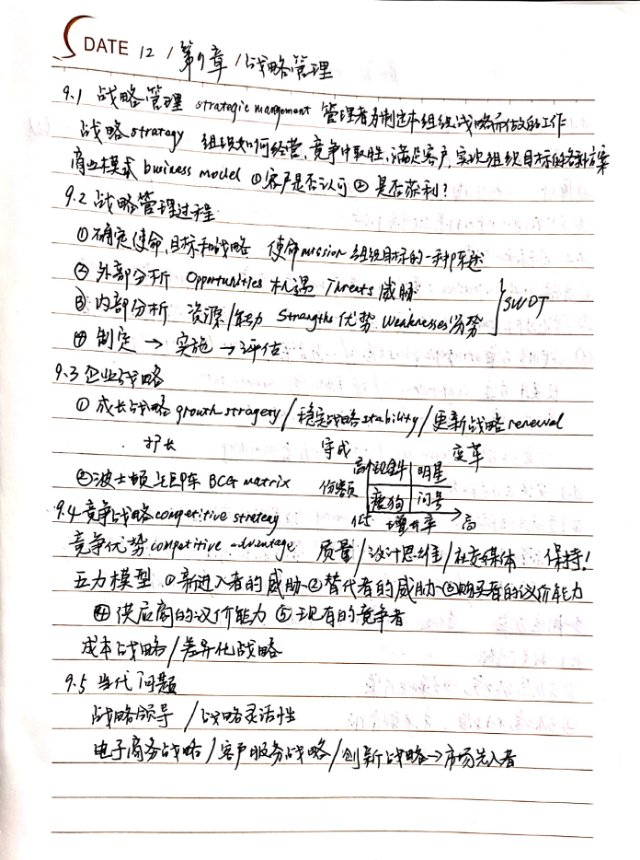 DATE 12 / 第9章 / 战略管理
9.1 战略管理 strategic mangement 管理者为制定本组织战略而做的工作
战略 strategy 组织如何经营,竞争中取胜,满足客户,实现组织目标的各种方案
商业模式 business model ①客户是否认可 ② 是否获利?
9.2 战略管理过程
①确定使命,目标和战略 使命mission 组织目标的一种陈述
②外部分析 Opportunities 机遇 Threats 威胁
③内部分析 资源/能力 Strengths 优势 Weaknesses 劣势 SWOT
④ 制定 → 实施 → 评估
9.3 企业战略
① 成长战略 growth stragety / 稳定战略stability / 更新战略 renewal
扩长 守成 变革
②波士顿矩阵 BCG matrix 份额 高 现金牛 明星
瘦狗 问号
低 增长率 高
9.4 竞争战略 competitive strategy
竞争优势 competitive advantage 质量 / 设计思维 / 社交媒体 保持!
五力模型 ①新进入者的威胁 ②替代者的威胁 ③购买者的议价能力
④ 供应商的议价能力 ⑤ 现有的竞争者
成本战略 / 差异化战略
9.5 当代问题
战略领导 / 战略灵活性
电子商务战略 / 客户服务战略 / 创新战略→市场先入者